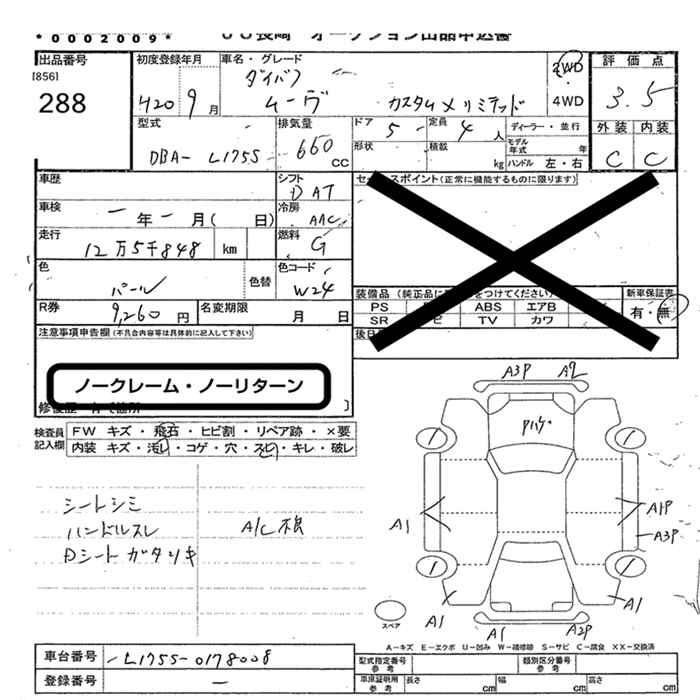 *0002009*
JU長崎 オークション出品申込書
出品番号
[856]
288
初度登録年月
H20 9月
車名・グレード
ダイハツ
ムーヴ カスタム メリミテッド
2WD
4WD
評価点
3.5
外装 内装
C C
型式
DBA- L175S-
排気量
660 CC
ドア 5-
形状
定員 4人
積載 kg
ディーラー・並行
モデル年式 年
ハンドル 左・右
車歴
シフト
DAT
車検
一年一月( 日)
冷房
AAC
走行
12万5千848 km
燃料
G
色
パール
色替
色コード
W24
R券
9,260円
名変期限
月 日
注意事項申告欄(不具合内容等は具体的に記入して下さい)
ノークレーム・ノーリターン
セールスポイント(正常に機能するものに限ります)
装備品(純正品に をつけてください)
PS ABS エアB
SR TV カワ
新車保証書
有・無
後日
検査員記入欄
FW キズ・飛石・ヒビ割・リペア跡・×要
内装 キズ・汚レ・コゲ・穴・スレ・キレ・破レ
シートシミ
ハンドルスレ
Dシート ガタツキ
A/C根
A3P
A2
A1
A1P
A3P
A1
A1
A1
A2P
スペア
A-キズ E-エクボ U-凹み W-補修跡 S-サビ C-腐食 XX-交換済
車台番号
-L175S-0178008
登録番号
一
型式指定番号 参考
類別区分番号 参考
車庫証明用 参考
長さ cm
幅 cm
高さ cm